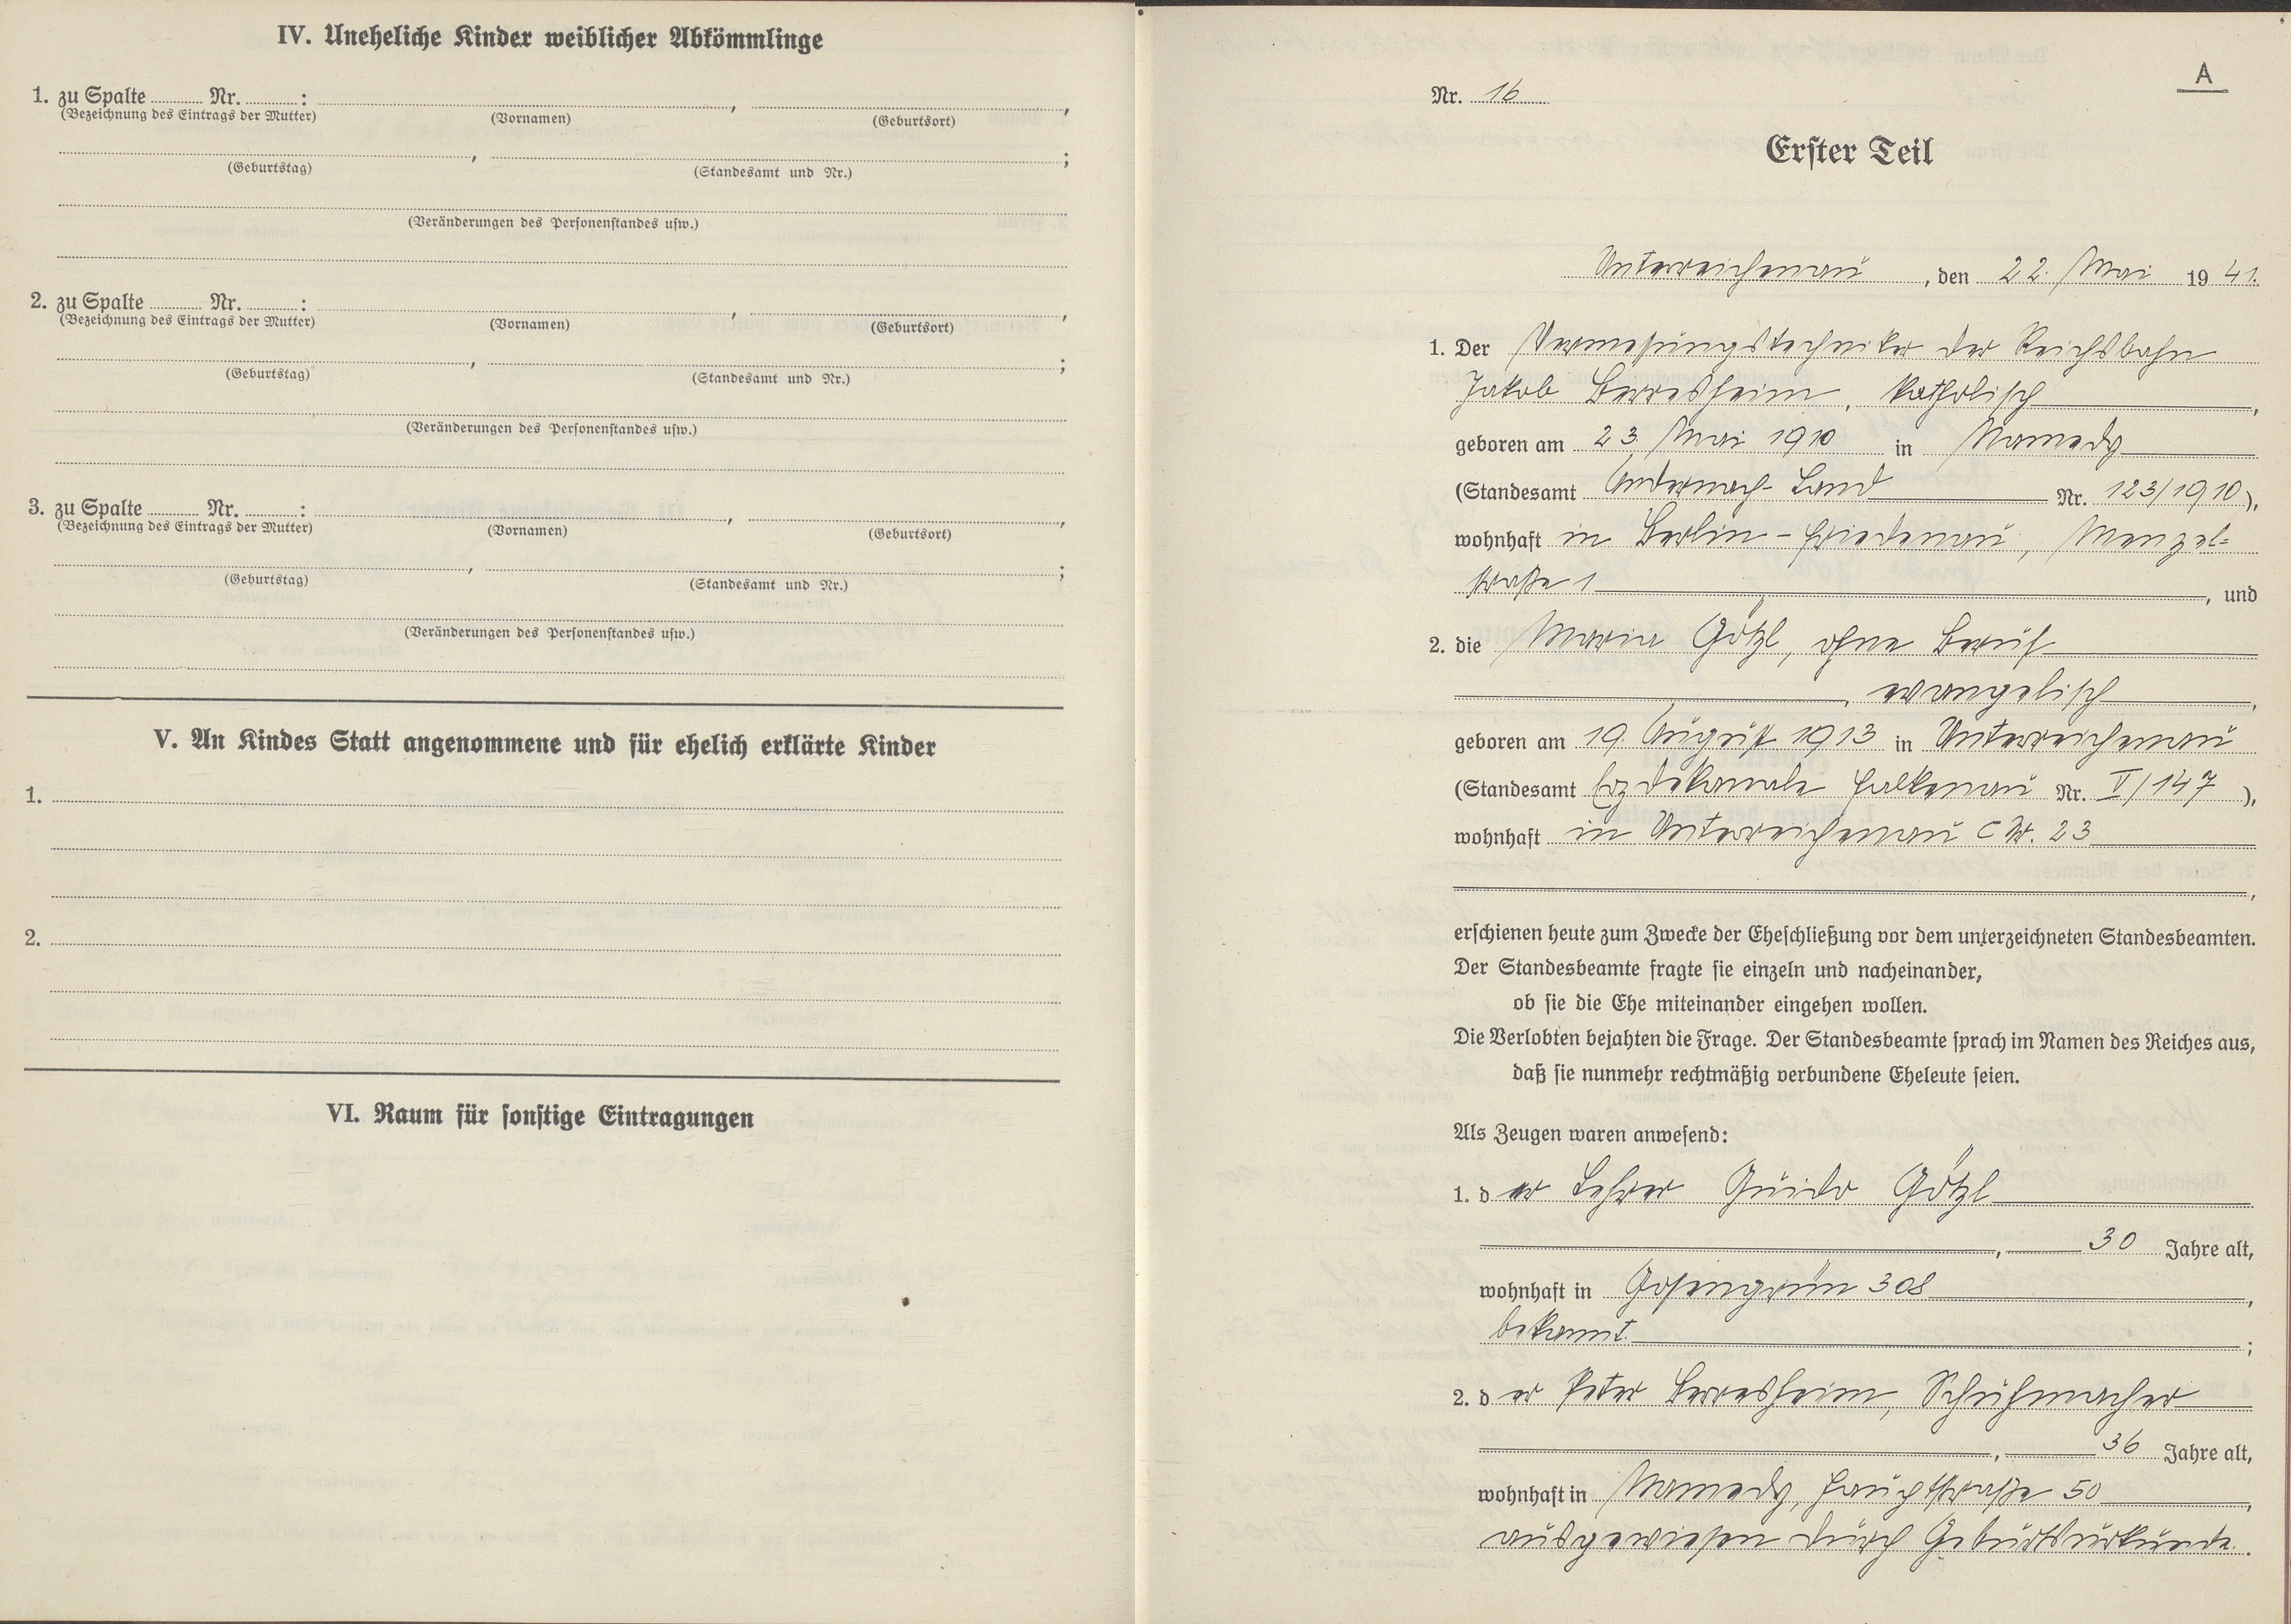 IV. Uneheliche Kinder weiblicher Abkömmlinge
1. zu Spalte ........ Nr. ........ : ........ , ........ ,
(Bezeichnung des Eintrags der Mutter) (Vornamen) (Geburtsort)
........ , ........ ;
(Geburtstag) (Standesamt und Nr.)
(Veränderungen des Personenstandes usw.)
2. zu Spalte ........ Nr. ........ : ........ , ........ ,
(Bezeichnung des Eintrags der Mutter) (Vornamen) (Geburtsort)
........ , ........ ;
(Geburtstag) (Standesamt und Nr.)
(Veränderungen des Personenstandes usw.)
3. zu Spalte ........ Nr. ........ : ........ , ........ ,
(Bezeichnung des Eintrags der Mutter) (Vornamen) (Geburtsort)
........ , ........ ;
(Geburtstag) (Standesamt und Nr.)
(Veränderungen des Personenstandes usw.)
V. An Kindes Statt angenommene und für ehelich erklärte Kinder
1.
2.
VI. Raum für sonstige Eintragungen
A
Nr. 16
Erster Teil
Unterreichenau, den 22. Mai 1941.
1. Der Vermessungstechniker der Reichsbahn
Jakob Berresheim, katholisch,
geboren am 23. Mai 1910 in Namedy
(Standesamt Andernach-Land Nr. 123/1910),
wohnhaft in Berlin-Friedenau, Menzel=
straße 1, und
2. die Maria Götzl, ohne Beruf
, evangelisch,
geboren am 19. August 1913 in Unterreichenau
(Standesamt Erzdekanale Falkenau Nr. V/147),
wohnhaft in Unterreichenau C Nr. 23
,
erschienen heute zum Zwecke der Eheschließung vor dem unterzeichneten Standesbeamten.
Der Standesbeamte fragte sie einzeln und nacheinander,
ob sie die Ehe miteinander eingehen wollen.
Die Verlobten bejahten die Frage. Der Standesbeamte sprach im Namen des Reiches aus,
daß sie nunmehr rechtmäßig verbundene Eheleute seien.
Als Zeugen waren anwesend:
1. der Lehrer Guido Götzl
, 30 Jahre alt,
wohnhaft in Gosengrün 308,
bekannt. ;
2. der Peter Berresheim, Schuhmacher
, 36 Jahre alt,
wohnhaft in Namedy, Hauptstraße 50,
ausgewiesen durch Geburtsurkunde.